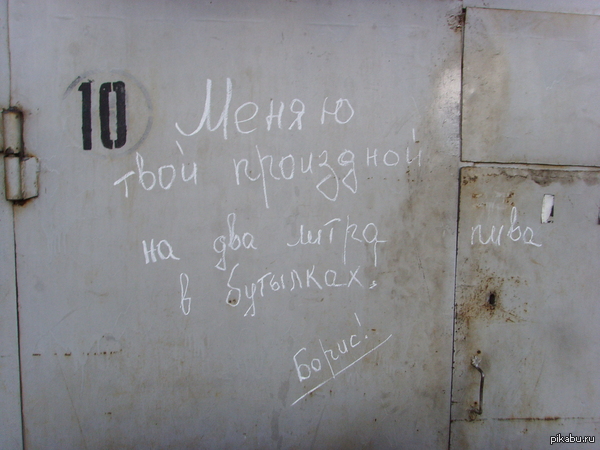 10
Меняю
твой произдной
на два литра пива
в бутылках.
Борис!
pikabu.ru